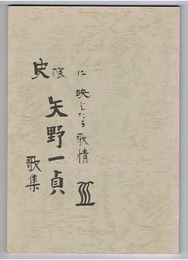 史眼に映じたる歌情
矢野一貞
歌集